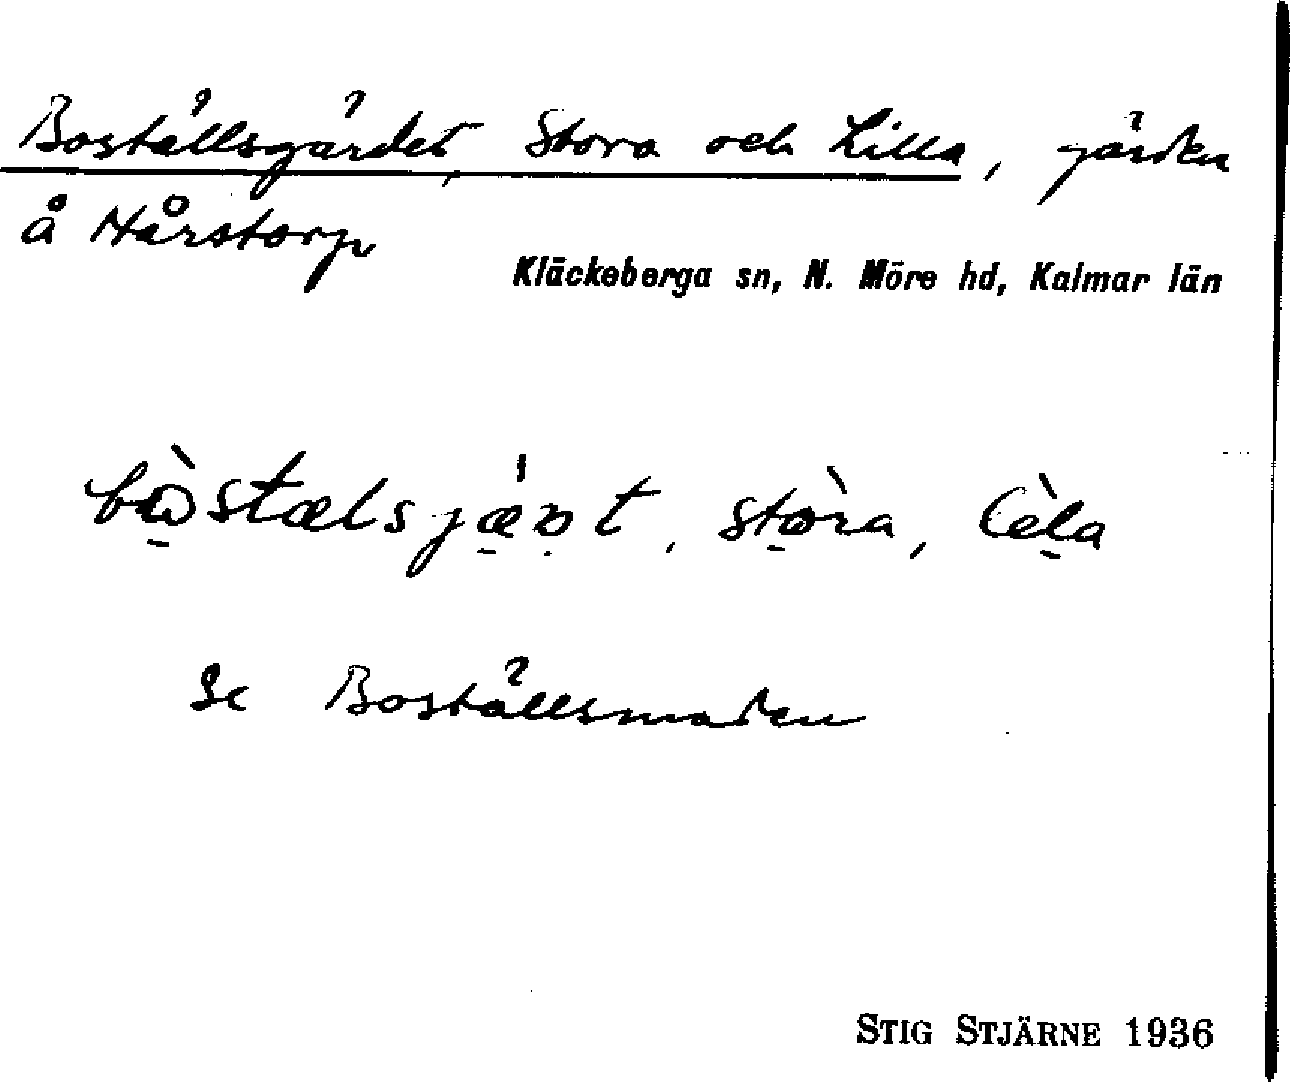 Boställsgärdet, Stora och Lilla, gärden
å Hårstorp
Kläckeberga sn, N. Möre hd, Kalmar län
stòra, lèla
Se Boställsmaden
STIG STJÄRNE 1936